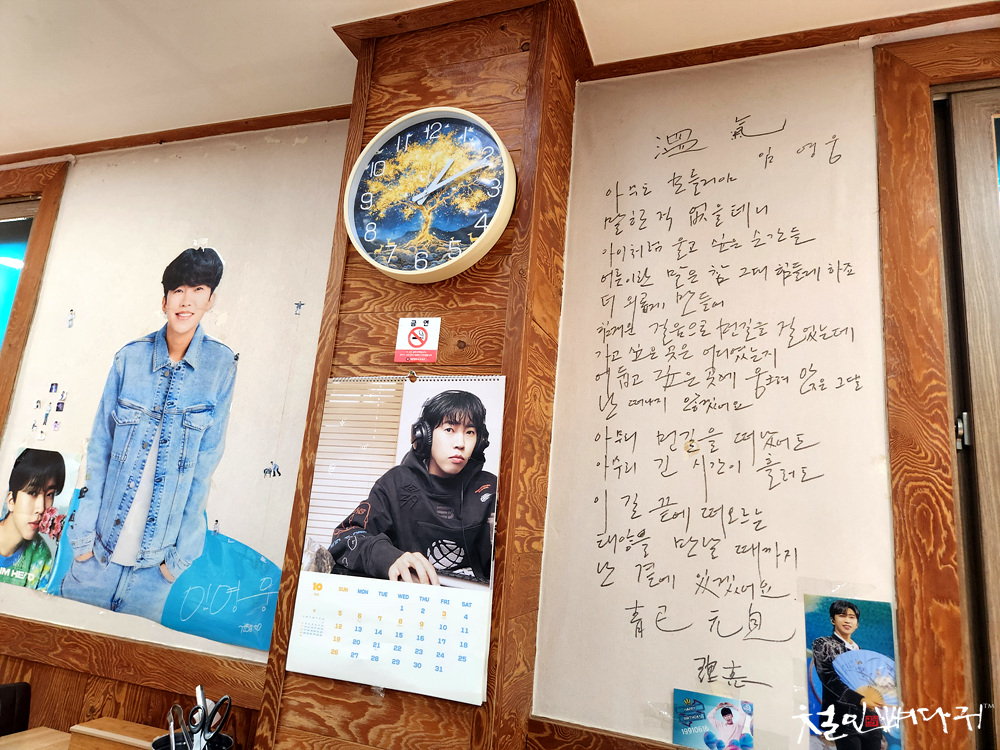 溫 氣
임 영웅
아무도 흐들리암
말한 적 없을테니
아이처럼 울고 싶은 순간들
어른이란 말은 참 그대 힘들게 하죠
더 외롭게 만들어
걸음으로 먼길을 걸었는데
가고 싶은 곳은 어디였는지
어둡고 깊은 곳에 웅크려 앉은 그댈
난 떠나지 않겠어요
아무리 먼길을 떠났어도
아무리 긴 시간이 흘러도
이 길 끝에 떠오르는
태양을 만날 때까지
난 곁에 있겠어요
12 1 2 3 4 5 6 7 8 9 10 11
금연
10
SUN MON TUE WED THU FRI SAT
1 2 3 4
5 6 7 8 9 10 11
12 13 14 15 16 17 18
19 20 21 22 23 24 25
26 27 28 29 30 31
임영웅
IM HERO
19910616
철민빠다귀™